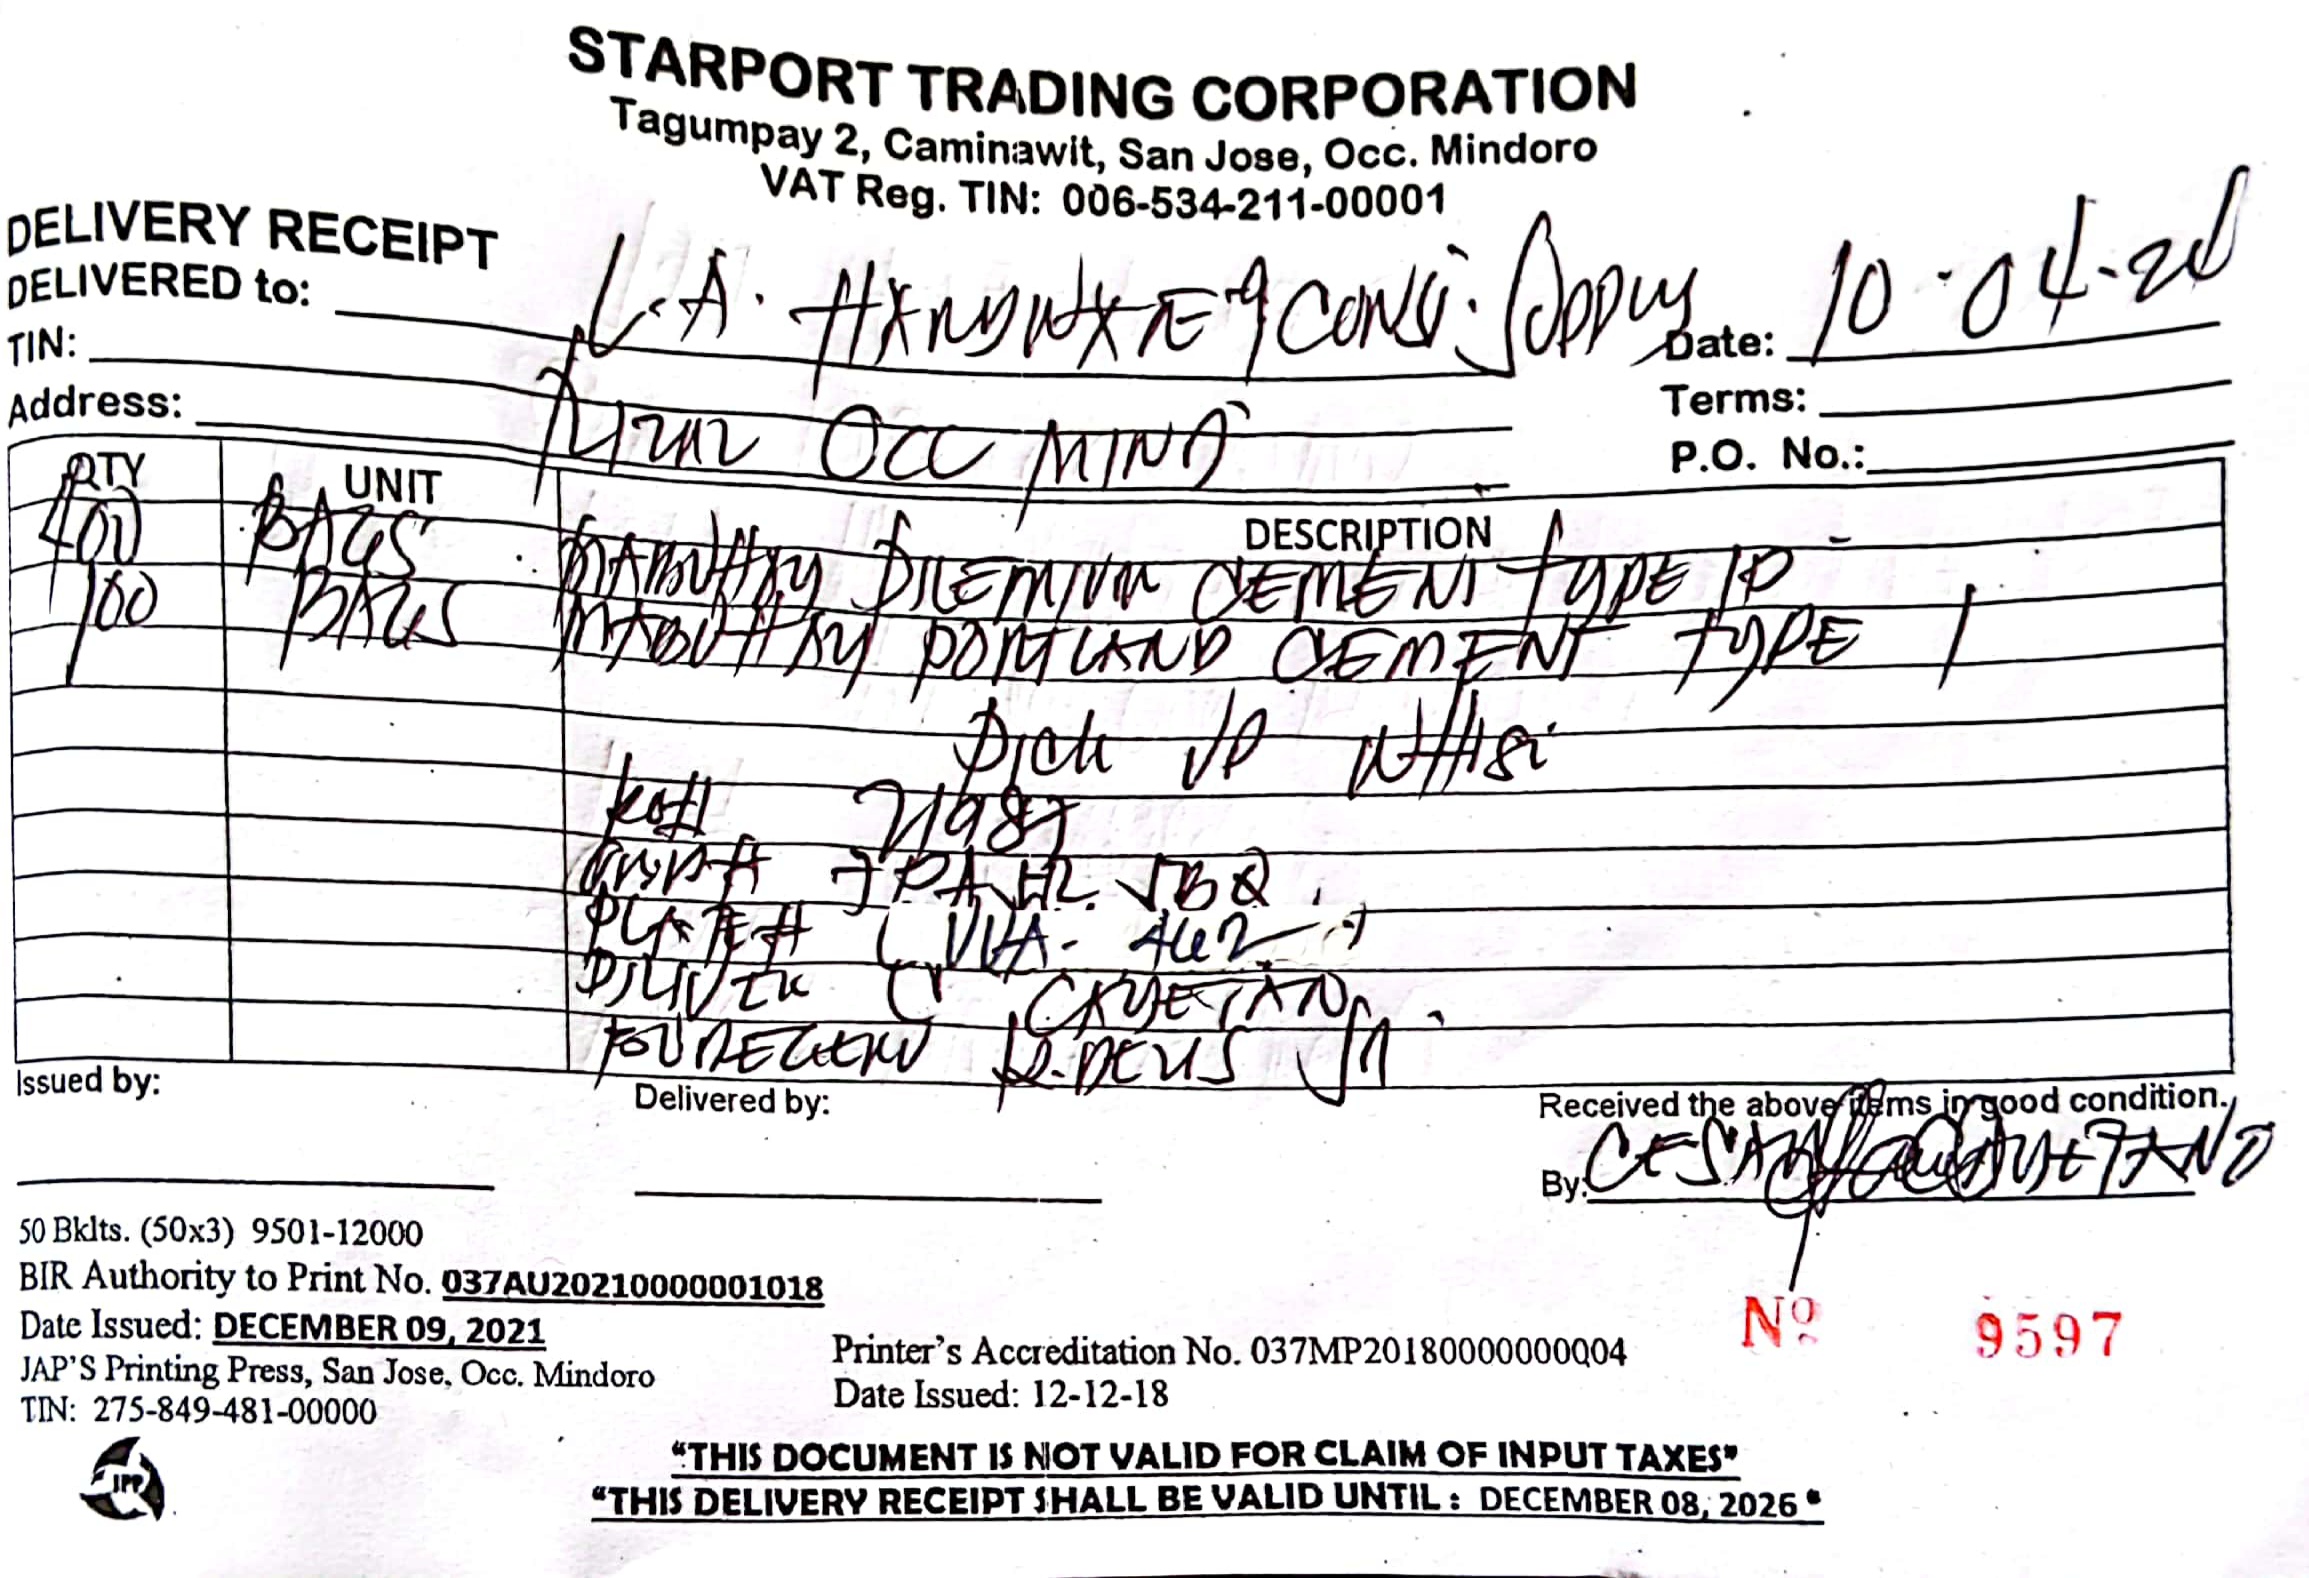 STARPORT TRADING CORPORATION
Tagumpay 2, Caminawit, San Jose, Occ. Mindoro
VAT Reg. TIN: 006-534-211-00001
DELIVERY RECEIPT
DELIVERED to: L.A. HARDWARE & CONS. SUPPLY
Date: 10-04-
TIN:
Terms:
Address: RIZAL OCC MIND
P.O. No.:
QTY UNIT DESCRIPTION
400 BAGS MABUHAY PREMIUM CEMENT TYPE 1P
100 BAGS MABUHAY PORTLAND CEMENT TYPE 1
PICK UP WHSE
21987
PLATE#
DRIVER C. CAYETANO
JR
Issued by:
Delivered by:
Received the above items in good condition.
By: CESAR CAYETANO
50 Bklts. (50x3) 9501-12000
BIR Authority to Print No. 037AU20210000001018
Date Issued: DECEMBER 09, 2021
JAP'S Printing Press, San Jose, Occ. Mindoro
TIN: 275-849-481-00000
Printer's Accreditation No. 037MP20180000000004
Date Issued: 12-12-18
Nº 9597
JPP
"THIS DOCUMENT IS NOT VALID FOR CLAIM OF INPUT TAXES"
"THIS DELIVERY RECEIPT SHALL BE VALID UNTIL : DECEMBER 08, 2026"